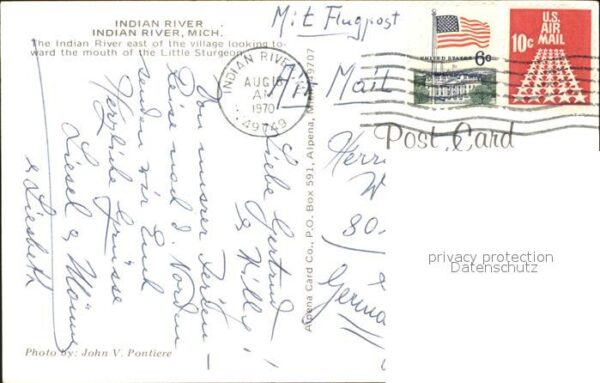 INDIAN RIVER
INDIAN RIVER, MICH.
The Indian River east of the village looking to-
ward the mouth of the Little Sturgeon.
Mit Flugpost
Air Mail
INDIAN RIVER
AUG 18
AM
1970
49749
UNITED STATES 6c
10c U.S.
AIR
MAIL
Post Card
Liebe Gertrud
& Willi!
Von unserer Ferien–
Reise nach d. Norden –
senden wir Euch
Herzliche Grüsse
Liesel &
& Liesbeth
Alpena Card Co., P.O. Box 591, Alpena, Mich. 49707
Herrn
W
80
Germa
privacy protection
Datenschutz
Photo by: John V. Pontiere